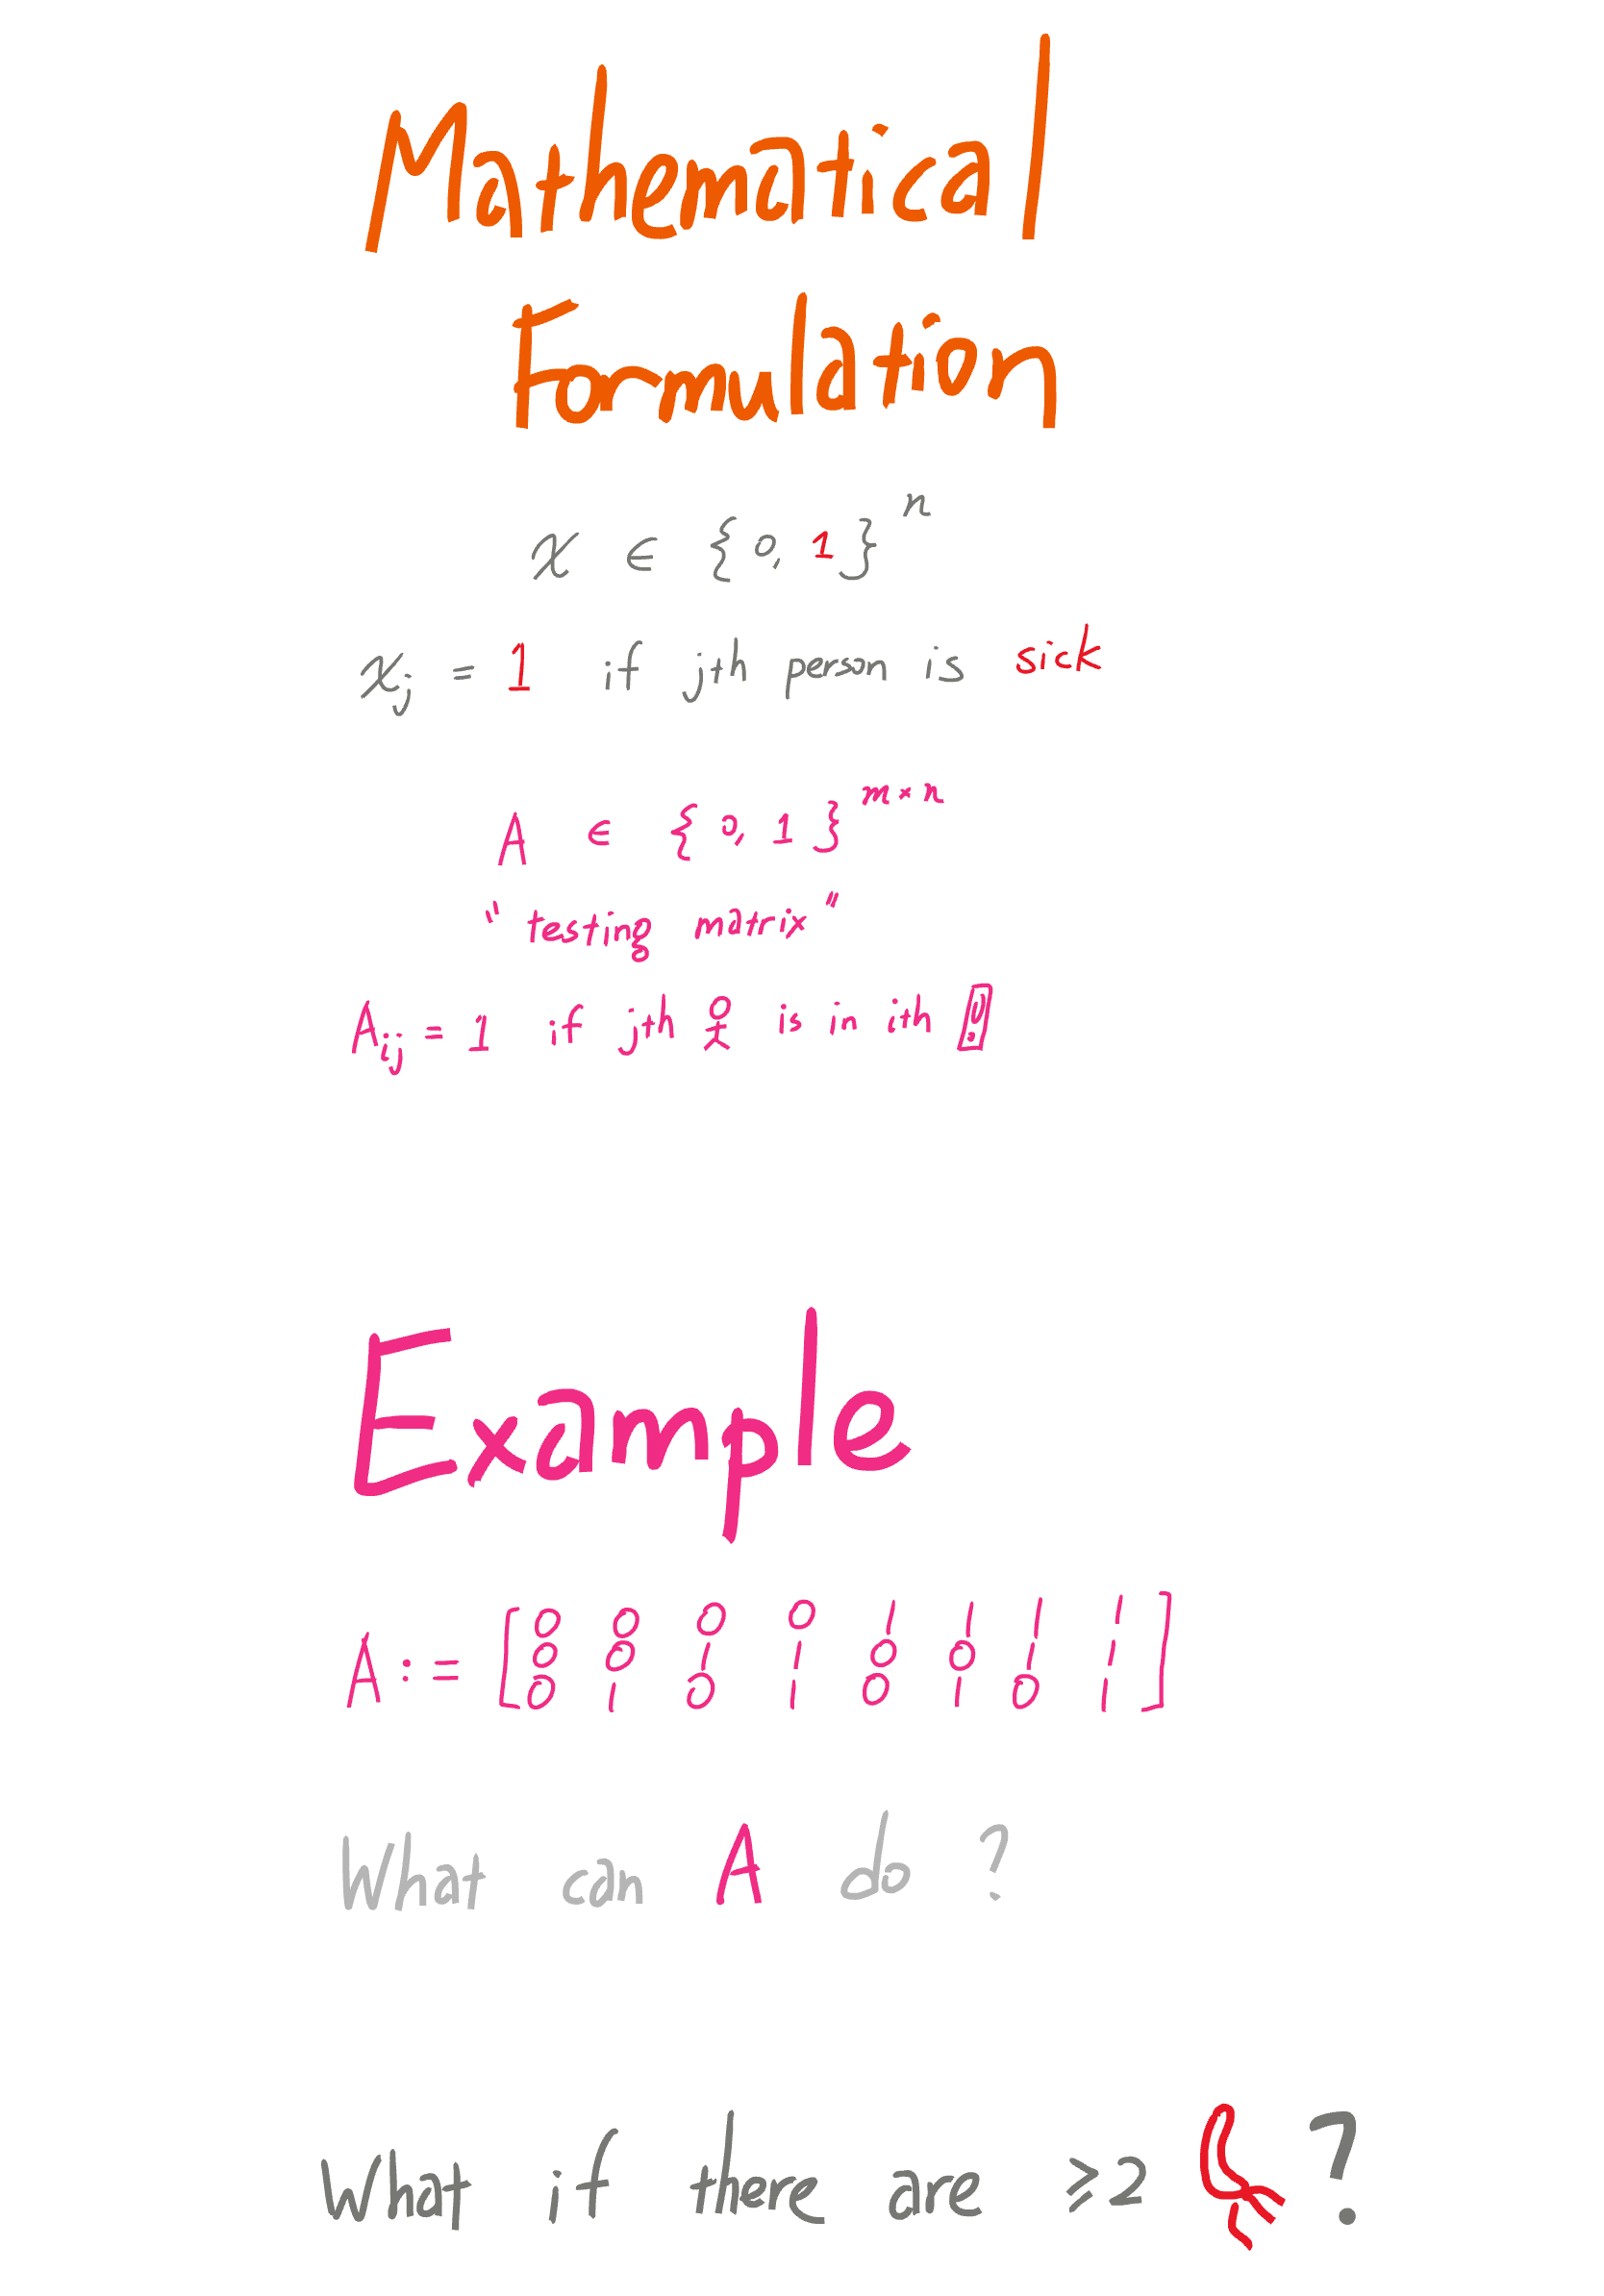 Mathematical
Formulation
x ∈ {0, 1}^n
x_j = 1 if jth person is sick
A ∈ {0, 1}^{m×n}
"testing matrix"
A_{ij} = 1 if jth is in ith
Example
A := [ 0 0 0 0 1 1 1 1
0 0 1 1 0 0 1 1
0 1 0 1 0 1 0 1 ]
What can A do ?
What if there are ≥2 ?